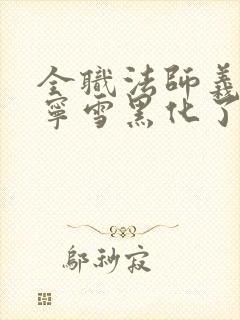 全職法師義
寧雪黑化了
鄔秒寂